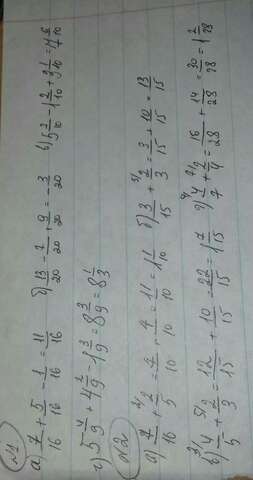 №1
а) 7/16 + 5/16 - 1/16 = 11/16 б) 13/20 - 7/20 + 9/20 = - 3/20 в) 5 3/10 - 1 2/10 + 3 1/10 =
г) 5 4/9 + 4 2/9 - 1 3/9 = 8 3/9 = 8 1/3
№2
а) 7/10 + 2/5 = 7/10 + 4/10 = 11/10 = 1 1/10 б) 3/15 + 2/3 = 3/15 + 10/15 = 13/15
в) 4/5 + 2/3 = 12/15 + 10/15 = 22/15 = 1 7/15 г) 4/7 + 2/4 = 16/28 + 14/28 = 30/28 = 1 2/28